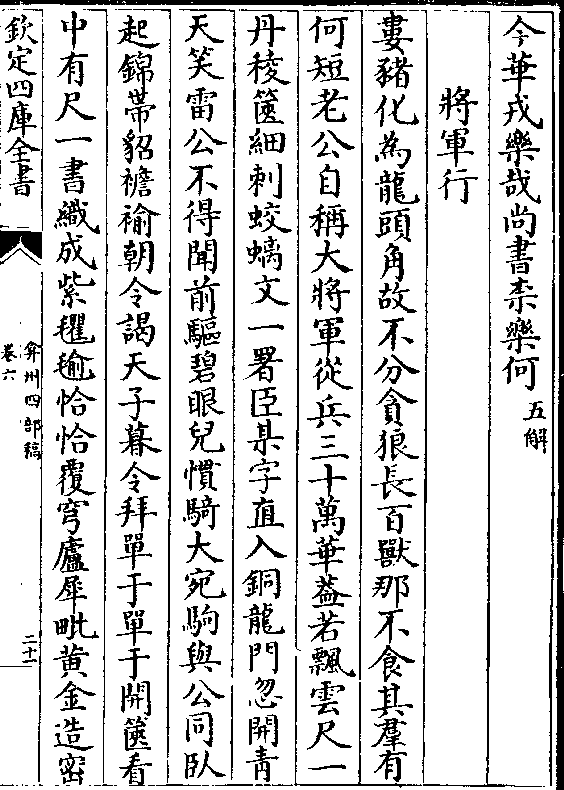 今華戎樂哉尚書柰樂何五解
將軍行
婁豬化為龍頭角故不分貪狼長百獸那不食其羣有
何短老公自稱大將軍從兵三十萬華葢若飄雲尺一
丹稜篋細刺蛟螭文一署臣某字直入銅龍門忽開青
天笑雷公不得聞前驅碧眼兒慣騎大宛駒與公同臥
起錦帶貂襜褕朝令謁天子暮令拜單于單于開篋看
中有尺一書織成紫氍毹恰恰覆穹廬犀毗黃金造密
欽定四庫全書
弇州四部稿
卷六
二十一